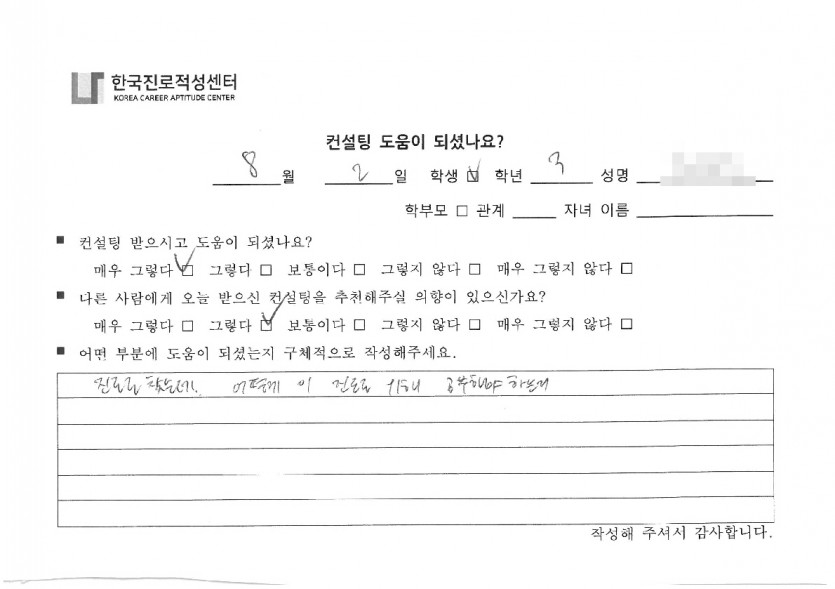 한국진로적성센터
KOREA CAREER APTITUDE CENTER
컨설팅 도움이 되셨나요?
8 월 2 일 학생 ☑ 학년 3 성명
학부모 □ 관계 자녀 이름
■ 컨설팅 받으시고 도움이 되셨나요?
매우 그렇다 ☑ 그렇다 □ 보통이다 □ 그렇지 않다 □ 매우 그렇지 않다 □
■ 다른 사람에게 오늘 받으신 컨설팅을 추천해주실 의향이 있으신가요?
매우 그렇다 □ 그렇다 ☑ 보통이다 □ 그렇지 않다 □ 매우 그렇지 않다 □
■ 어떤 부분에 도움이 되셨는지 구체적으로 작성해주세요.
진로를 찾는데. 어떻게 이 진로를 위해 공부해야 하는지
작성해 주셔서 감사합니다.